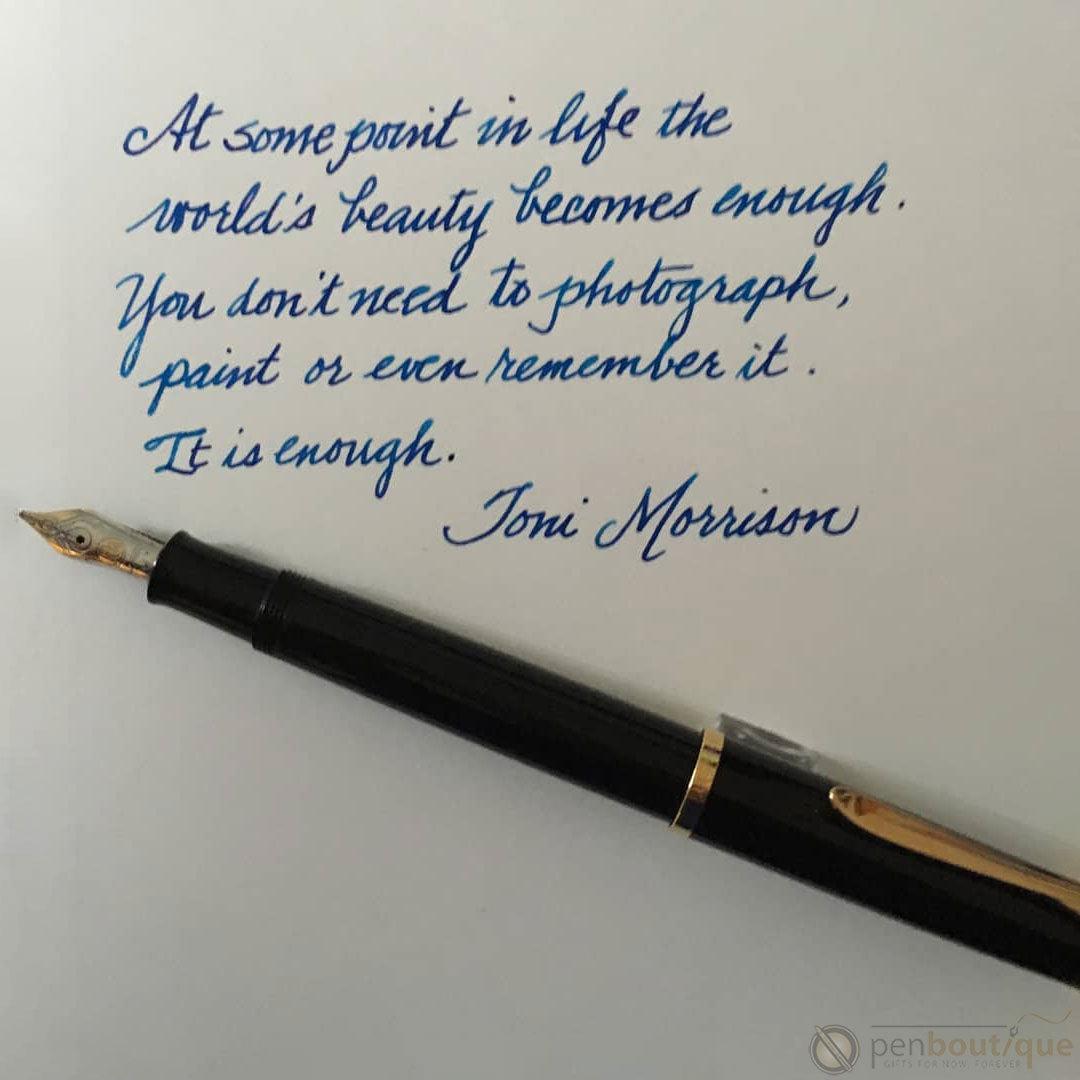 At some point in life the
world's beauty becomes enough.
You don't need to photograph,
paint or even remember it.
It is enough.
Toni Morrison
penboutique
GIFTS FOR NOW, FOREVER